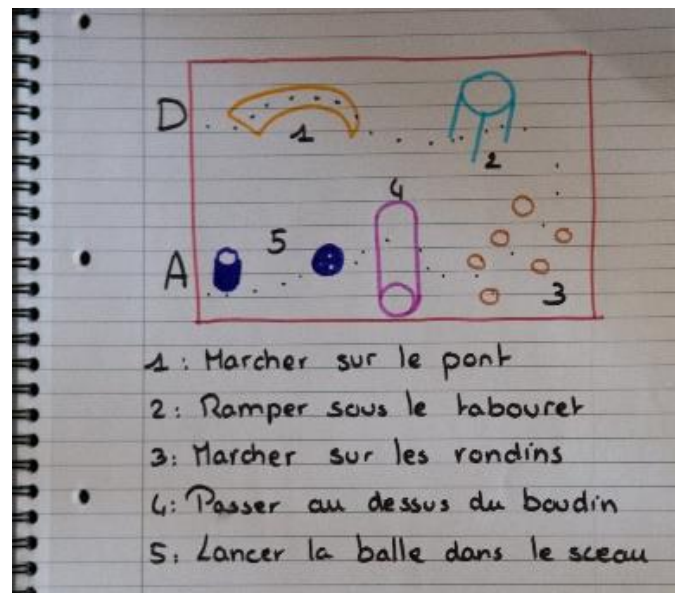 D
1
2
4
5
A
3
1: Marcher sur le pont
2: Ramper sous le tabouret
3: Marcher sur les rondins
4: Passer au dessus du boudin
5: Lancer la balle dans le sceau